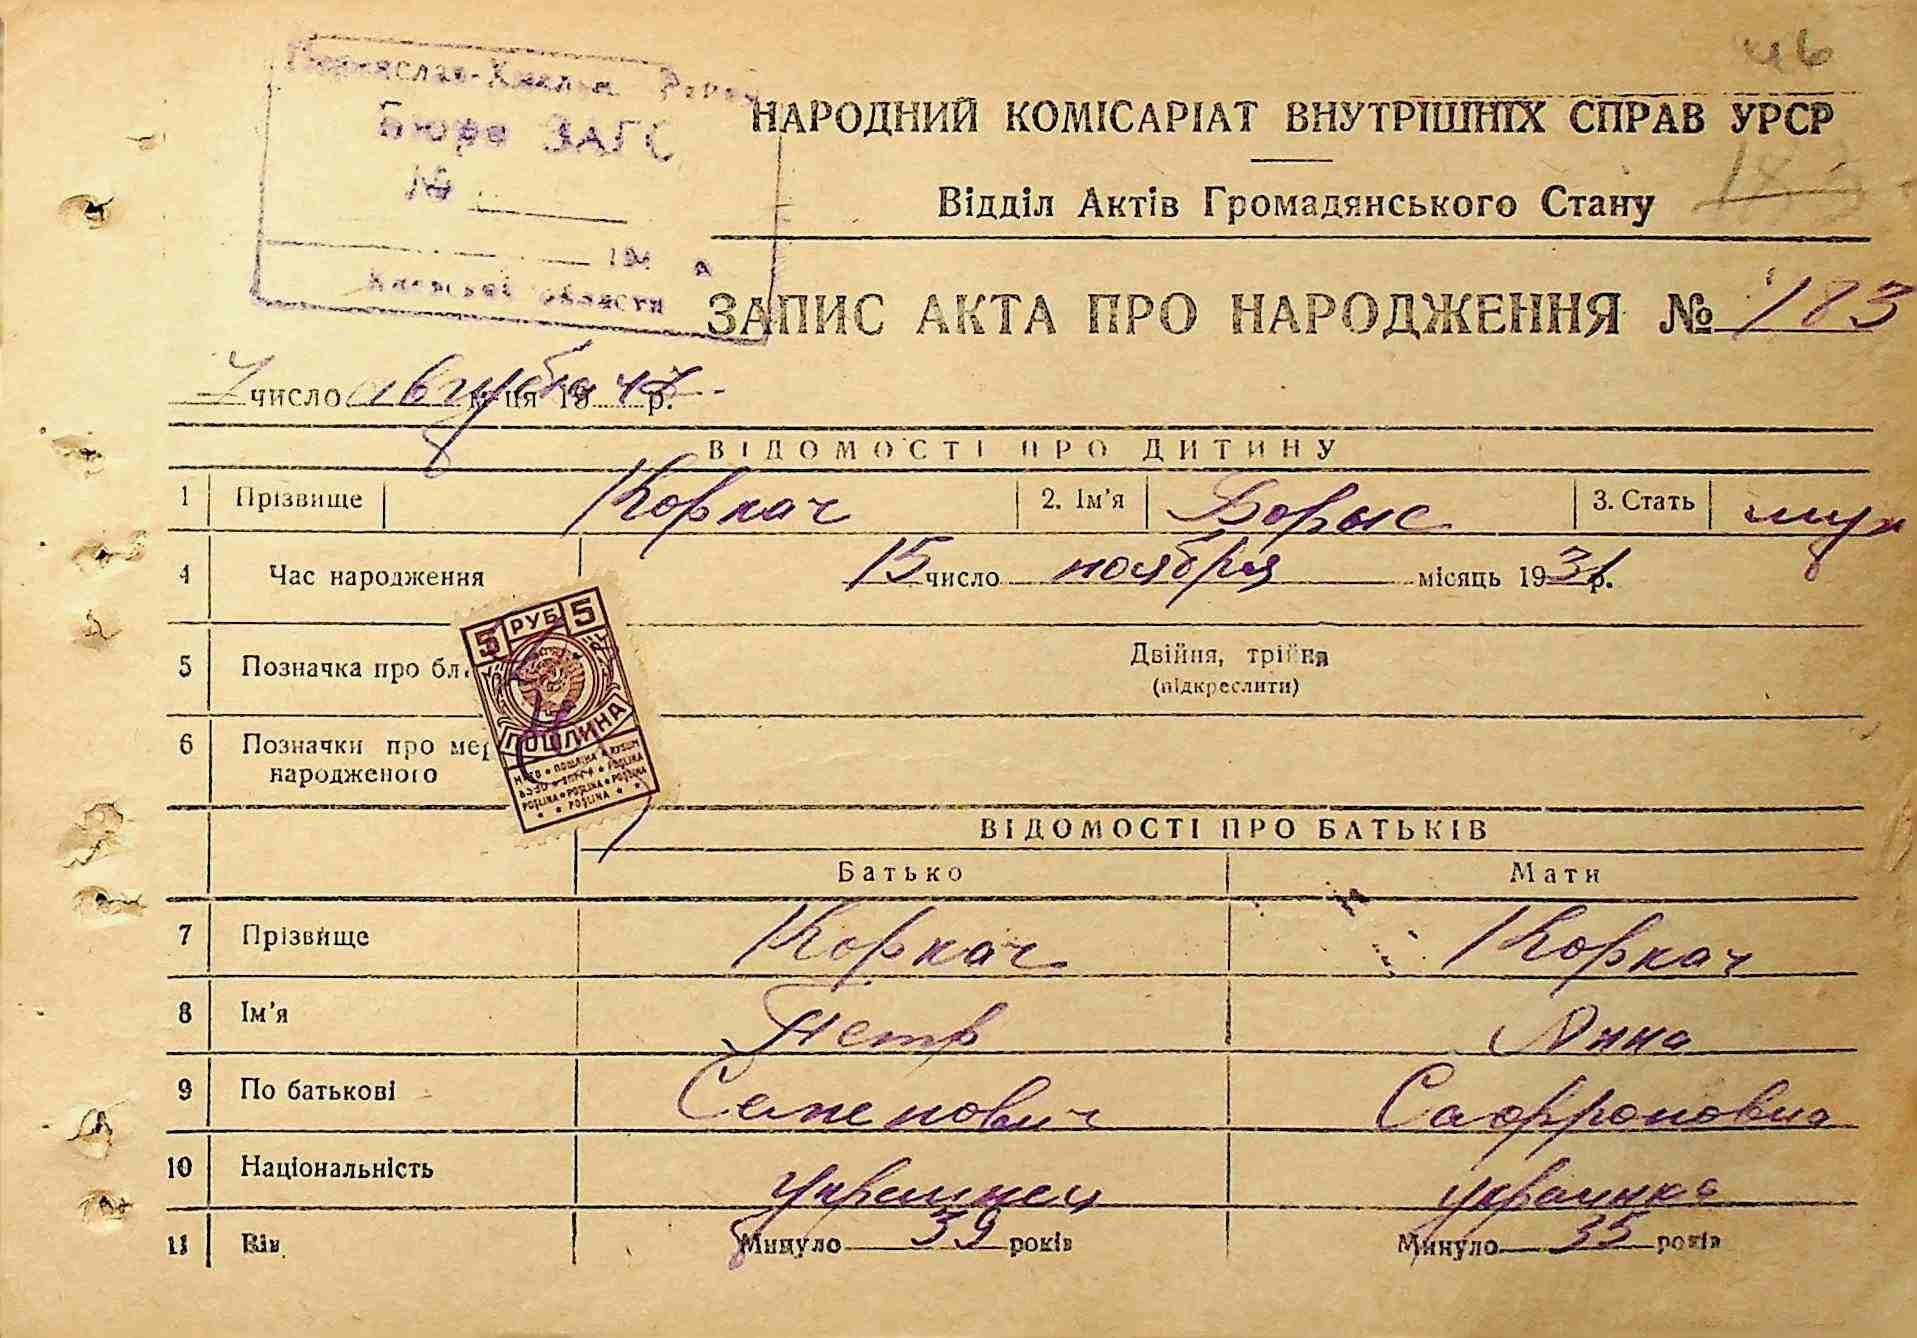 46
Переяслав-Хмельн. Район
Бюро ЗАГС
№
194 р
Киевской области
НАРОДНИЙ КОМІСАРІАТ ВНУТРІШНІХ СПРАВ УРСР
Відділ Актів Громадянського Стану
183
ЗАПИС АКТА ПРО НАРОДЖЕННЯ № 183
7 число августа м-ця 19 47 р.
ВІДОМОСТІ ПРО ДИТИНУ
1 Прізвище Коркач 2. Ім'я Борыс 3. Стать муж
4 Час народження 15 число ноября місяць 1931 р.
5 Позначка про бл Двійня, трійня
(підкреслити)
6 Позначки про мер
народженого
5 РУБ 5
ПОШЛИНА
ВІДОМОСТІ ПРО БАТЬКІВ
Батько Мати
7 Прізвище Коркач Коркач
8 Ім'я Петр Анна
9 По батькові Семенович Сафроновна
10 Національність украинец украинка
11 Вік Минуло 39 років Минуло 35 років